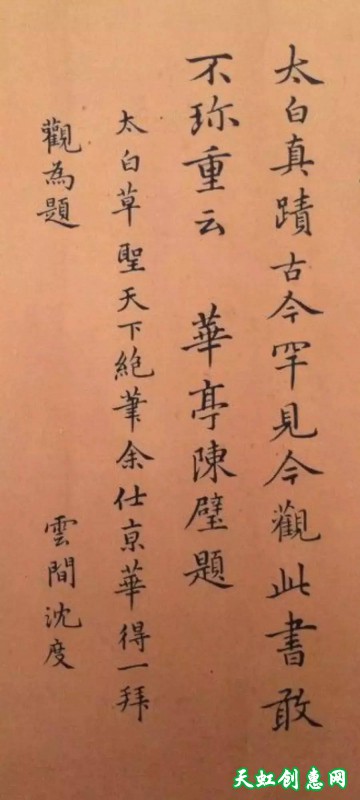 太白真蹟古今罕見今觀此書敢
不珎重云 華亭陳璧題
太白草聖天下絶筆余仕京華得一拜
觀為題 雲間沈度
天虹创惠网